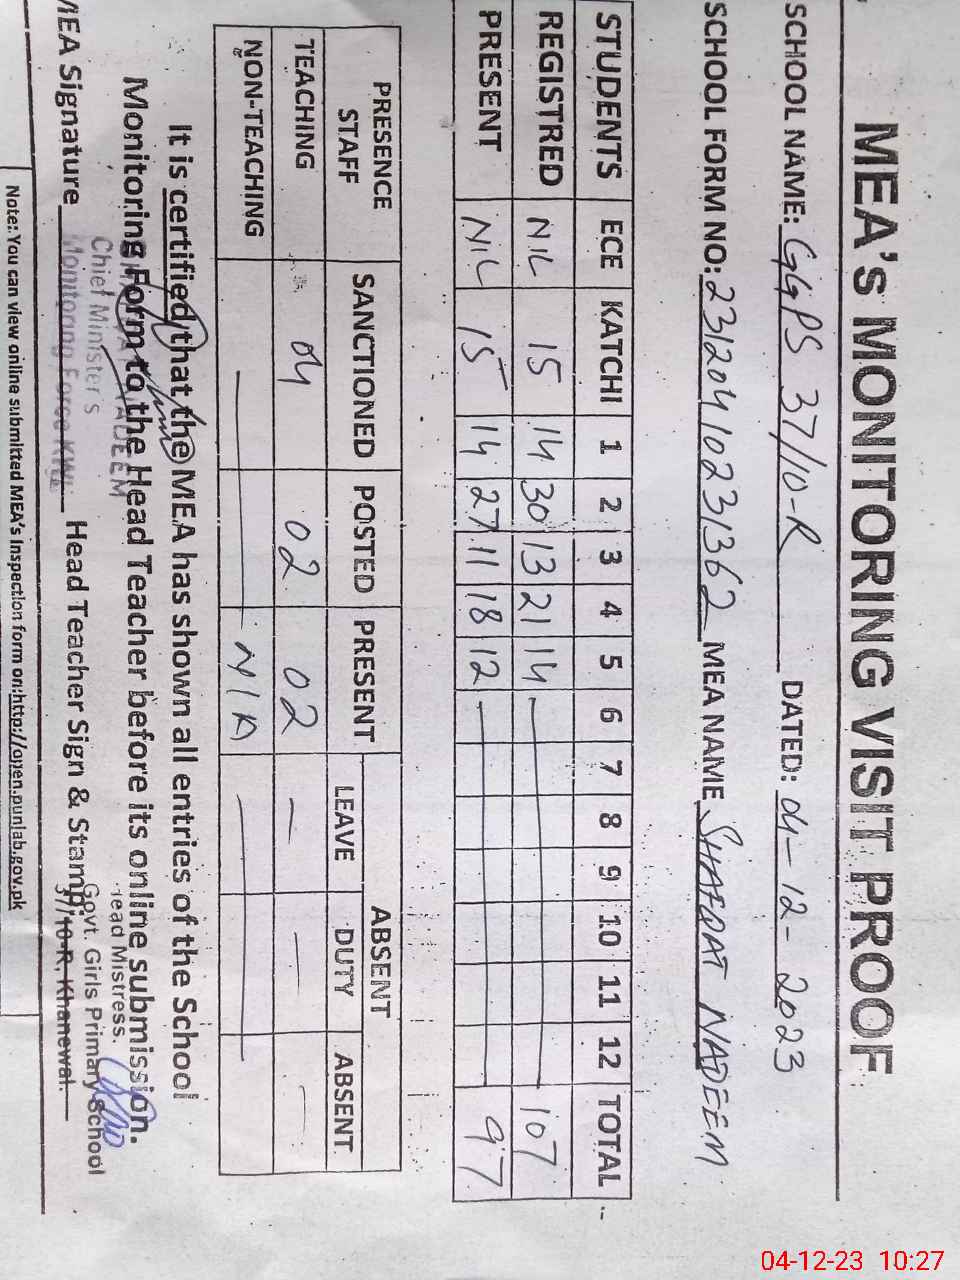 MEA's MONITORING VISIT PROOF
SCHOOL NAME: GGPS 37/10-R DATED: 04-12-2023
SCHOOL FORM NO: 23120410231362 MEA NAME SHAFQAT NADEEM
STUDENTS ECE KATCHI 1 2 3 4 5 6 7 8 9 10 11 12 TOTAL
REGISTRED NIL 15 14 30 13 21 14 107
PRESENT NIL 15 14 27 11 18 12 97
PRESENCE STAFF SANCTIONED POSTED PRESENT ABSENT
LEAVE DUTY ABSENT
TEACHING 04 02 02 — — —
NON-TEACHING — NIL —
It is certified that the MEA has shown all entries of the School
Monitoring Form to the Head Teacher before its online submission.
NADEEM
Chief Minister's
Monitoring Force KWL
Head Mistress.
Govt. Girls Primary School
37/10-R, Khanewal.
MEA Signature Head Teacher Sign & Stamp:
Note:. You can view online submitted MEA's inspection form on:http://open.punjab.gov.pk
04-12-23 10:27